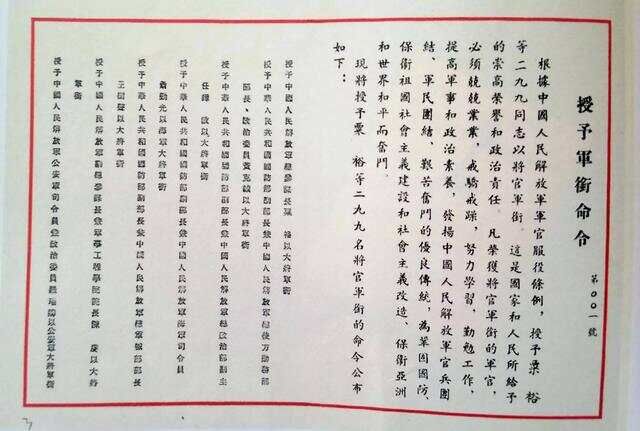 授予軍銜命令
第００一號
根據中國人民解放軍軍官服役條例，授予粟　裕
等二九九同志以將官軍銜。這是國家和人民所給予
的崇高榮譽和政治責任。凡榮獲將官軍銜的軍官，
必須兢兢業業，戒驕戒躁，努力學習，勤勉工作，
提高軍事和政治素養，發揚中國人民解放軍官兵團
結、軍民團結、艱苦奮鬥的優良傳統，為鞏固國防、
保衛祖國社會主義建設和社會主義改造、保衛亞洲
和世界和平而奮鬥。
現將授予粟　裕等二九九名將官軍銜的命令公布
如下：
授予中國人民解放軍總參謀長粟　裕以大將軍銜
授予中華人民共和國國防部副部長兼中國人民解放軍總後方勤務部
部長、政治委員黃克誠以大將軍銜
授予中華人民共和國國防部副部長兼中國人民解放軍總政治部副主
任譚　政以大將軍銜
授予中華人民共和國國防部副部長兼中國人民解放軍海軍司令員
蕭勁光以海軍大將軍銜
授予中華人民共和國國防部副部長兼中國人民解放軍總軍械部部長
王樹聲以大將軍銜
授予中國人民解放軍副總參謀長兼軍事工程學院院長陳　賡以大將
軍銜
授予中國人民解放軍公安軍司令員兼政治委員羅瑞卿以公安軍大將軍銜